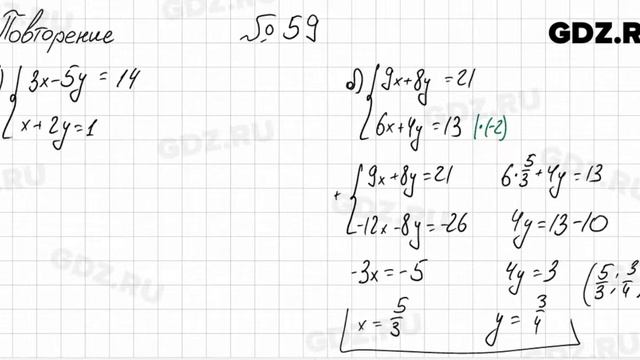 Повторение № 59
GDZ.RU
) { 3x-5y = 14
x + 2y = 1
б) { 9x+8y = 21
6x+4y = 13 |·(-2)
+ { 9x+8y = 21
-12x-8y = -26
-3x = -5
x = 5/3
6·5/3+4y = 13
4y = 13-10
4y = 3
y = 3/4
(5/3; 3/4
GDZ.RU
GDZ.RU
GDZ.RU
GDZ.RU
GDZ.RU